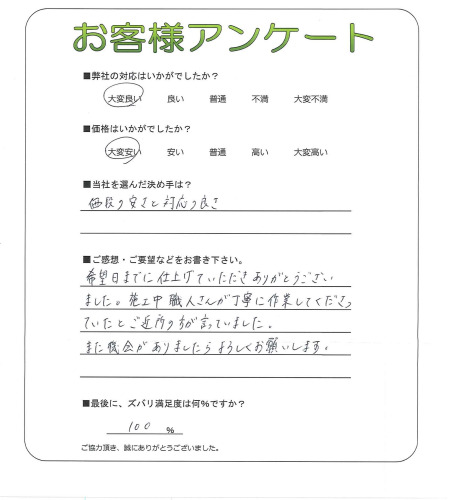 お客様アンケート
■弊社の対応はいかがでしたか?
大変良い 良い 普通 不満 大変不満
■価格はいかがでしたか?
大変安い 安い 普通 高い 大変高い
■当社を選んだ決め手は?
価段の安さと対応の良さ
■ご感想・ご要望などをお書き下さい。
希望日までに仕上げていただきありがとうござい
ました。施工中 職人さんが丁寧に作業してくださっ
ていたとご近所の方が言っていました。
また機会がありましたらよろしくお願いします。
■最後に、ズバリ満足度は何%ですか?
100 %
ご協力頂き、誠にありがとうございました。